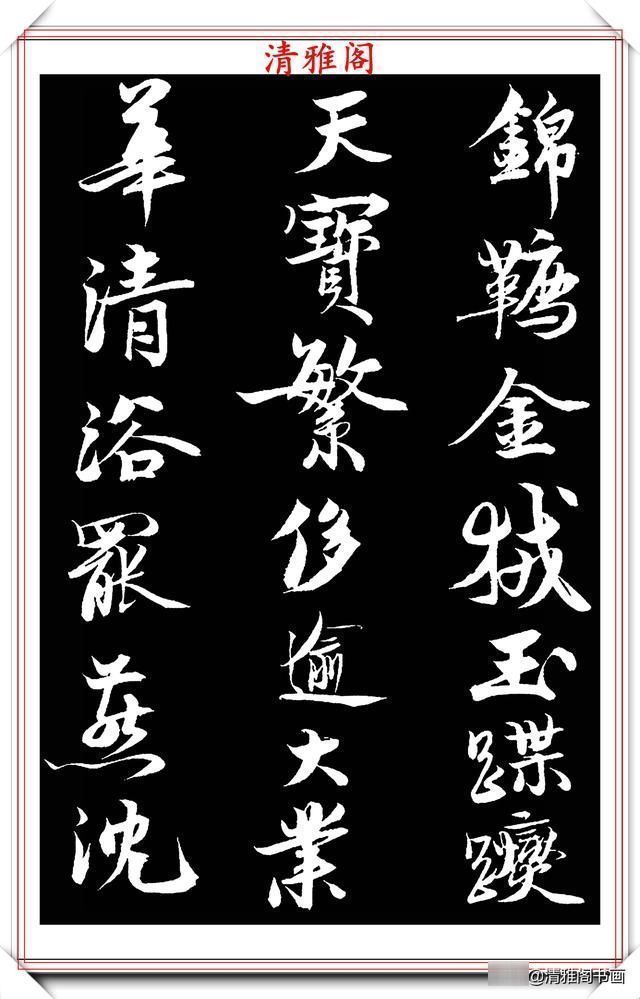 清雅阁
錦韉金狨玉蹀躞
天寶繁侈逾大業
華清浴罷燕沈
@清雅阁书画